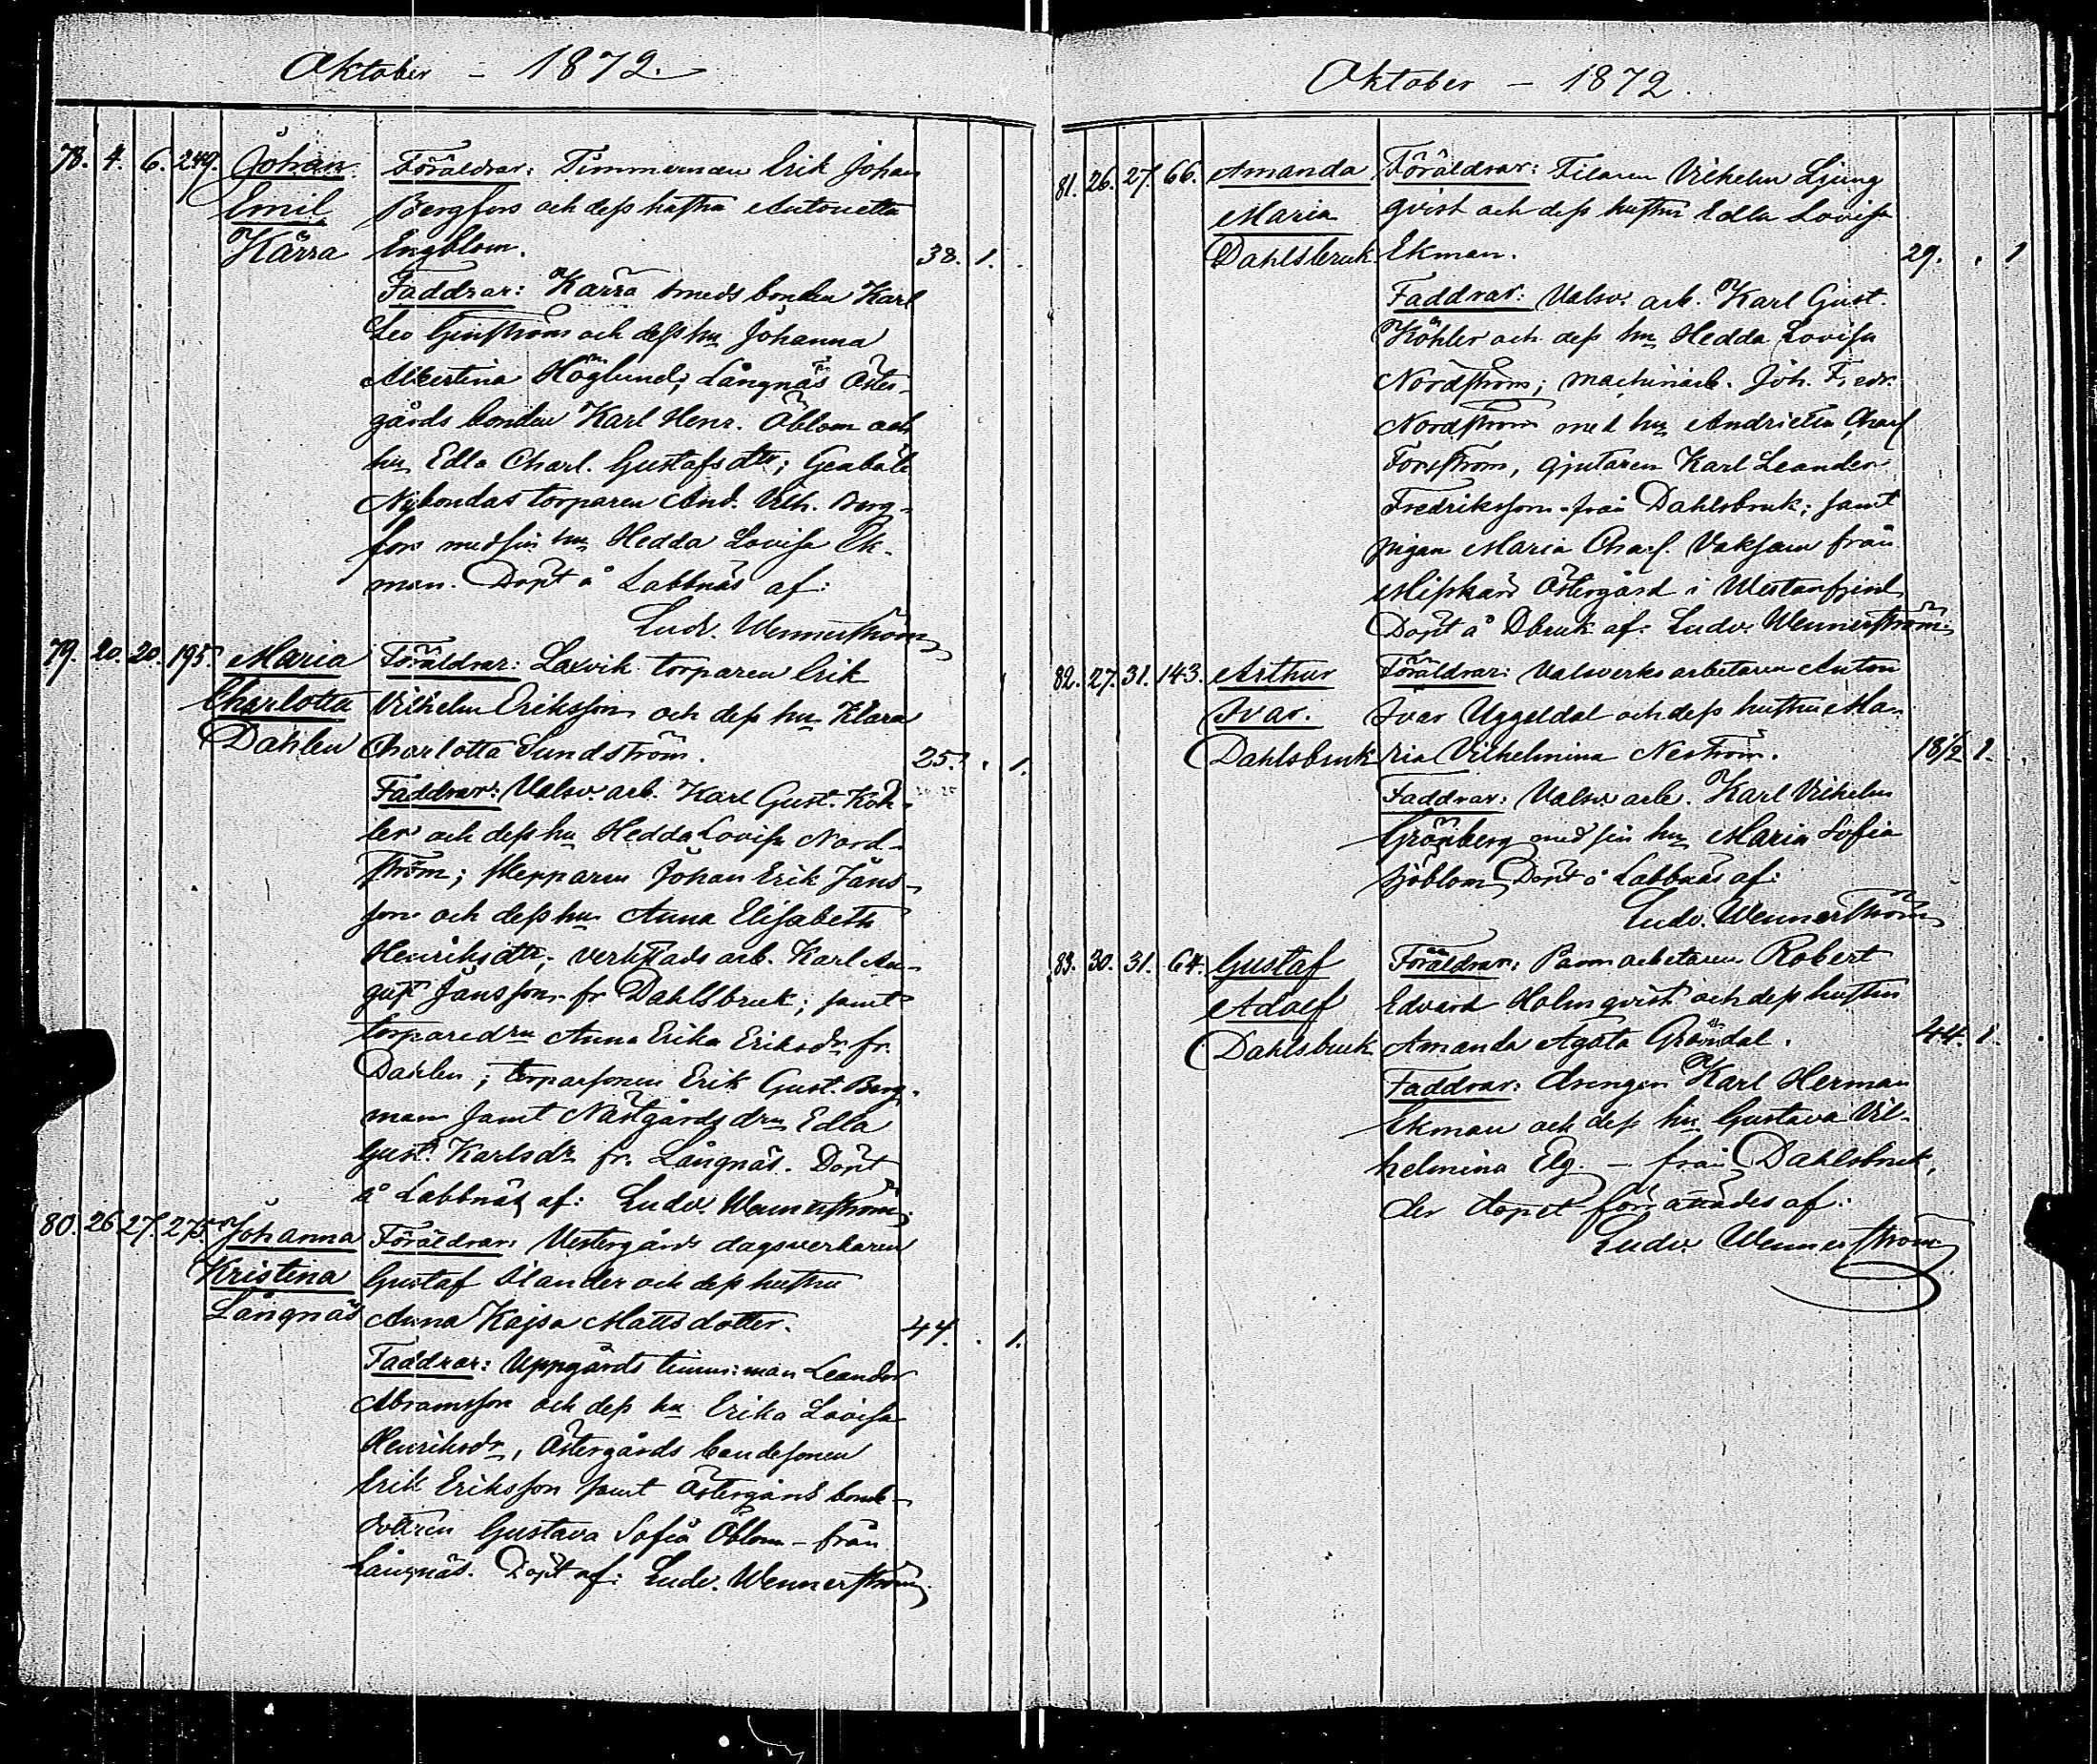 Oktober – 1872.
78. 4. 6. 249. Johan Föräldrar: Timmerman Erik Johan
Emil Bergfors och dess hustru Antonetta
Kärra Engblom. 38. 1.
Faddrar: Kärra smeds bonden Karl
Leo Ginström och dess hu Johanna
Albertina Höglund; Långnäs Öster-
gårds bonden Karl Henr. Öblom och
hu Edla Charl. Gustafsdtr; Genböle
Nybondas torparen And. Vilh. Berg-
fors med sin hu Hedda Lovisa Ek-
man. Döpt å Labbnäs af:
Ludv. Wennerström
79. 20. 20. 195. Maria Föräldrar: Laxvik torparen Erik
Charlotta Vilhelm Eriksson och dess hu Klara
Dahlen Charlotta Sundström. 25. . 1.
Faddrar: Valsv. arb. Karl Gust. Köh-
ler och dess hu Hedda Lovisa Nord-
ström; skepparen Johan Erik Jans-
son och dess hu Anna Elisabeth
Henriksdtr; verkstads arb. Karl Au-
gust Jansson fr Dahlsbruk; samt
torparedrn Anna Erika Eriksdr fr.
Dahlen; torparsonen Erik Gust. Berg-
man samt Nästgårds drn Edla
Gust. Karlsdr fr. Långnäs. Döpt
å Labbnäs af: Ludv. Wennerström
80. 26 27. 275. Johanna Föräldrar: Vestergårds dagsverkaren
Kristina Gustaf Ölander och dess hustru
Långnäs Anna Kajsa Mattsdotter. 44. . 1.
Faddrar: Uppgårds timm:man Leander
Abramsson och dess hu Erika Lovisa
Henriksdr, Östergårds bondesonen
Erik Eriksson samt Östergårds bond-
dottren Gustava Sofia Öblom – från
Långnäs. Döpt af: Ludv. Wennerström
Oktober – 1872.
81. 26. 27. 66. Amanda Föräldrar: Filaren Vilhelm Ljung
Maria qvist och dess hustru Edla Lovisa
Dahlsbruk Ekman. 29. . 1
Faddrar: Valsv. arb. Karl Gust.
Köhler och dess hu Hedda Lovisa
Nordström; machinarb. Joh. Fredr.
Nordström med hu Andrietta Charl
Forsström, gjutaren Karl Leander
Fredriksson från Dahlsbruk; samt
pigan Maria Charl. från
Östergård i Westanfjerd
Döpt å Dbruk af. Ludv. Wennerström.
82. 27. 31. 143. Arthur Föräldrar: Valsverks arbetaren Anton
Ivar. Ivar Uggeldal och dess hustru Ma-
Dahlsbruk ria Vilhelmina Neström. 18½ 1.
Faddrar: Valsv. arb. Karl Vilhelm
Grönberg med sin hu Maria Sofia
Sjöblom Döpt å Labbnäs af:
Ludv. Wennerström
83. 30. 31. 64. Gustaf Föräldrar: arbetaren Robert
Adolf Edvard Holmqvist och dess hustru
Dahlsbruk Amanda Agata Gröndal. 44. 1.
Faddrar: drengen Karl Herman
Ekman och dess hu Gustava Vil-
helmina Elg – från Dahlsbruk,
der dopet förrättades af:
Ludv. Wennerström